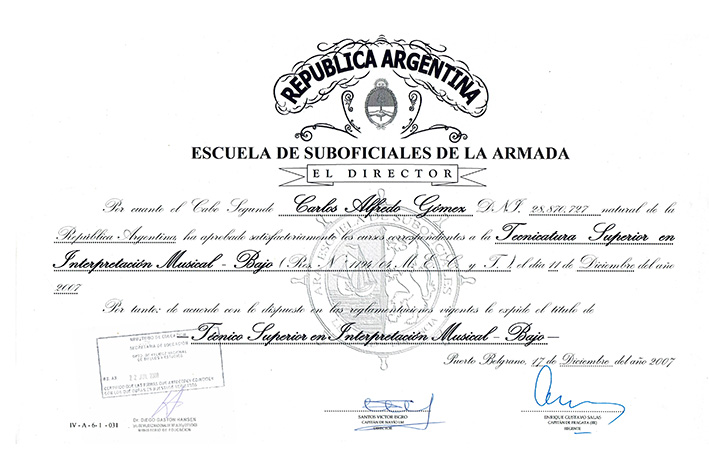 REPUBLICA ARGENTINA
ESCUELA DE SUBOFICIALES DE LA ARMADA
EL DIRECTOR
Por cuanto el Cabo Segundo Carlos Alfredo Gómez D.N.I. 28.870.727 natural de la
República Argentina, ha aprobado satisfactoriamente los cursos correspondientes a la Tecnicatura Superior en
Interpretación Musical - Bajo (Res. Nº 1194/04 M. E. C. y T.) el día 11 de Diciembre del año
2007
Por tanto: de acuerdo con lo dispuesto en las reglamentaciones vigentes le expido el título de
Técnico Superior en Interpretación Musical - Bajo
Puerto Belgrano, 17 de Diciembre del año 2007
MINISTERIO DE EDUCACION
SECRETARIA DE EDUCACION
IV - A - 6- 1 - 031
MINISTERIO DE EDUCACION
CAPITÁN DE NAVIO
DIRECTOR
ENRIQUE GUSTAVO SALAS
CAPITÁN DE FRAGATA (RE)
REGENTE